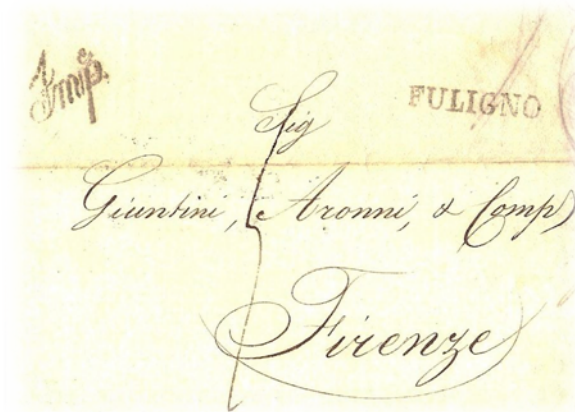 Impe
FULIGNO
Sig
Giuntini, Aronni, & Comp
Firenze